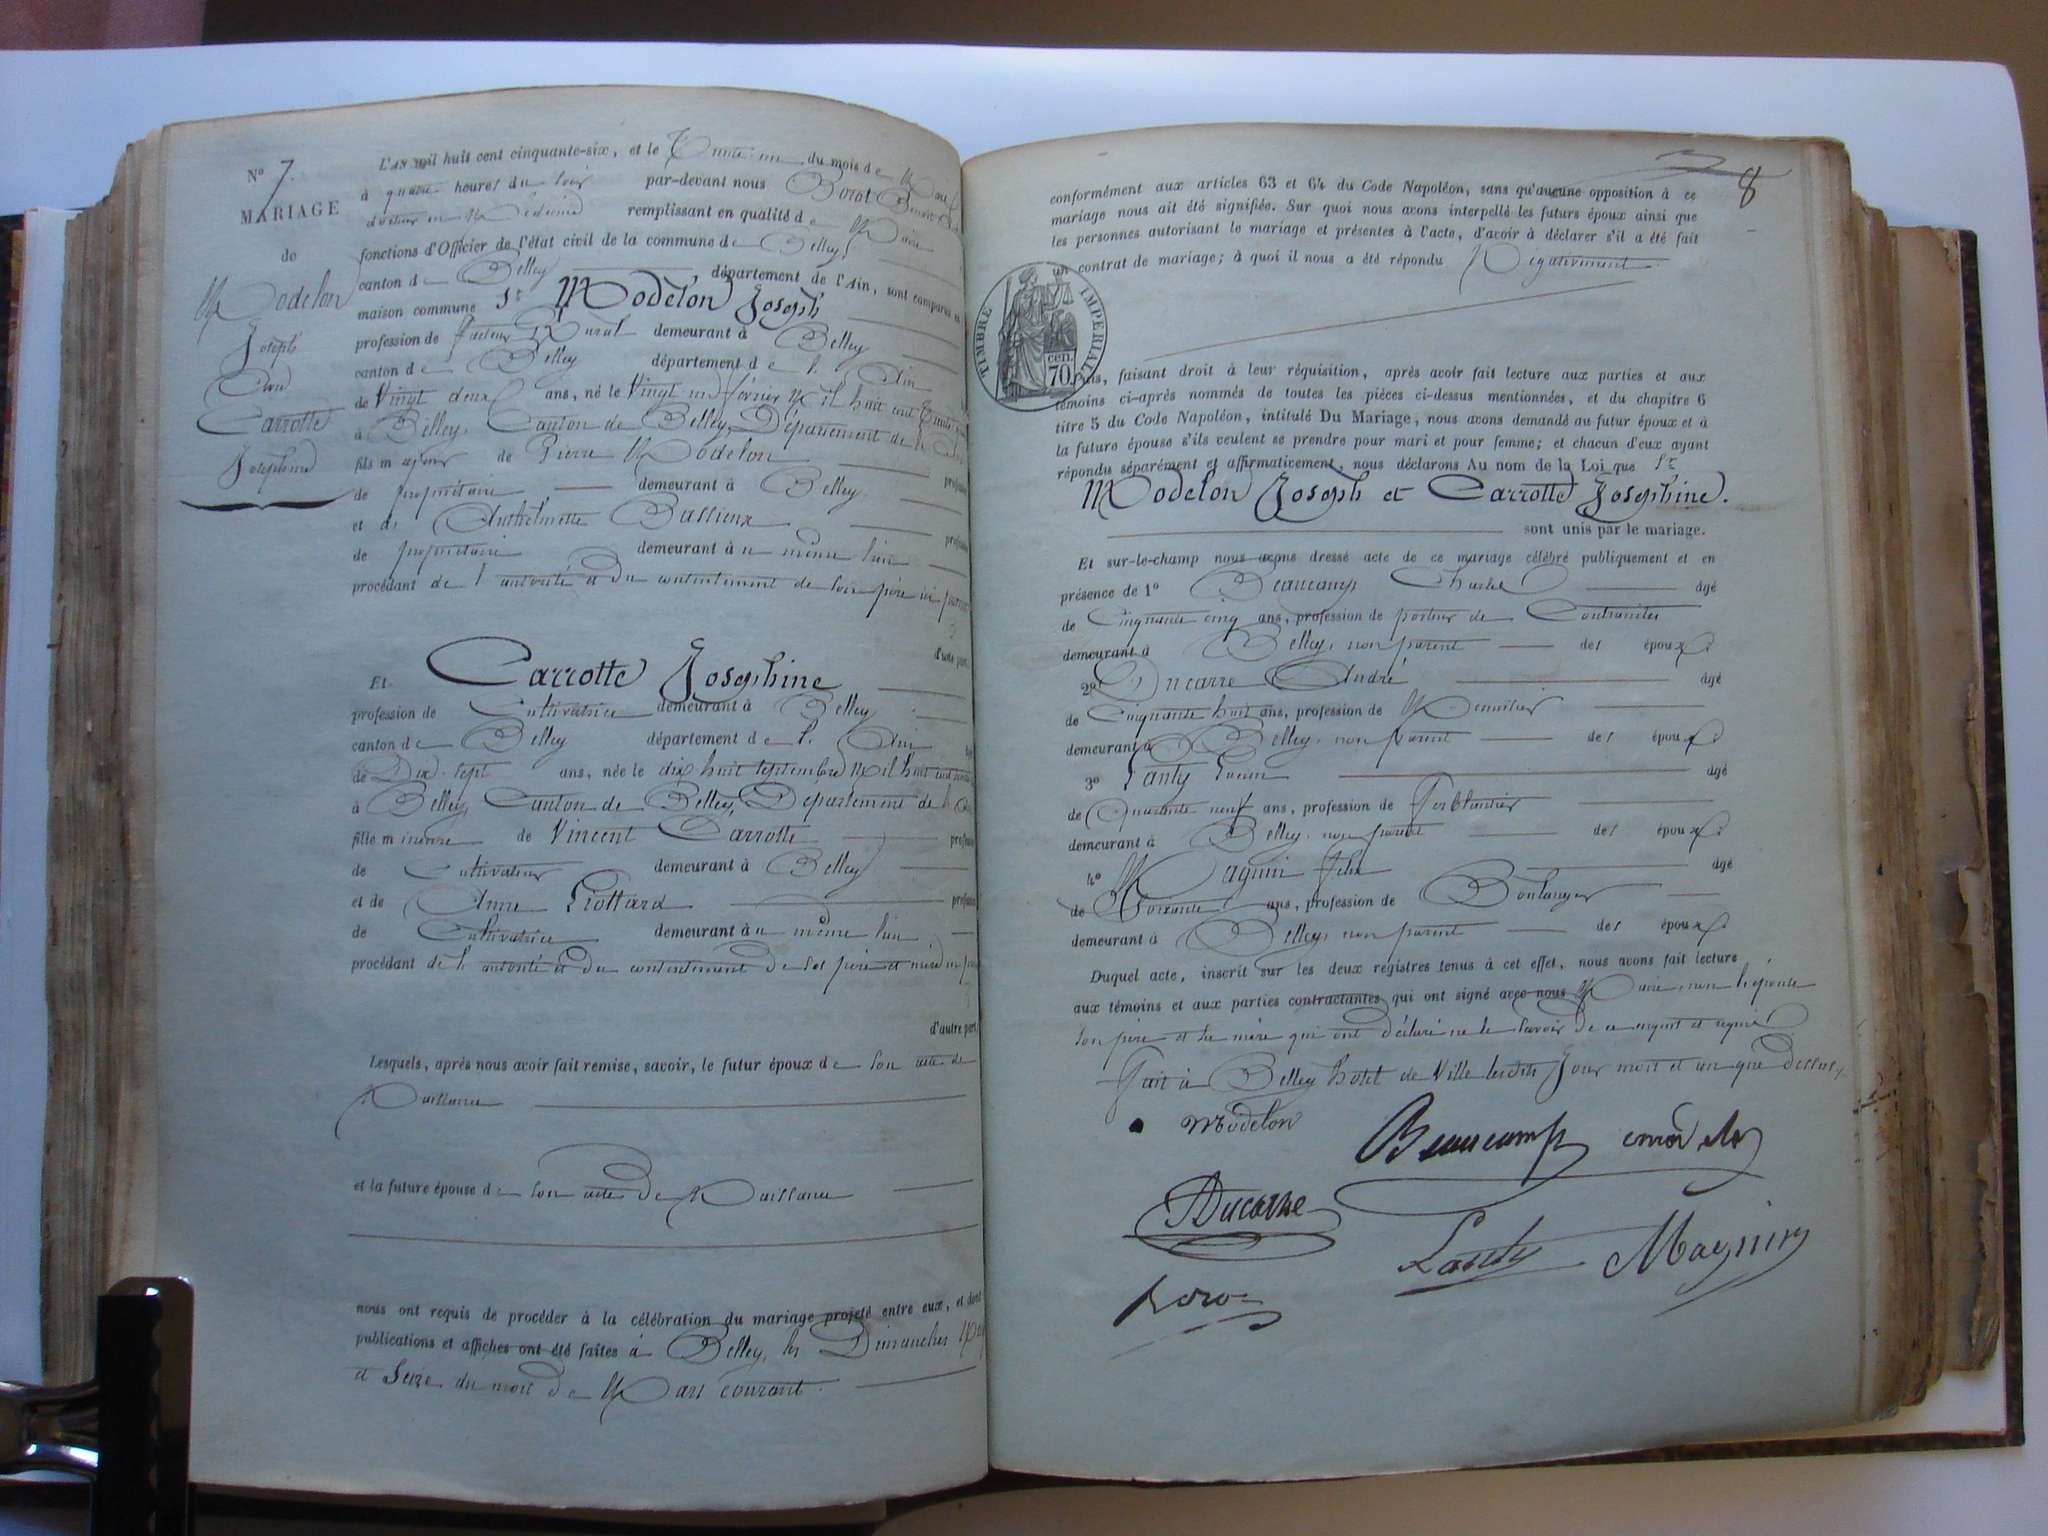 N° 7.
MARIAGE
de
Modelon
Joseph
Et
Carrotte
Josephine
L'AN mil huit cent cinquante-six, et le Trente un du mois de Mars
à quatre heures du soir par-devant nous
docteur en Médecine remplissant en qualité de Maire
fonctions d'Officier de l'état civil de la commune de Belley
canton de Belley département de l'Ain, sont comparus en
maison commune Sr Modelon Joseph
profession de facteur Rural demeurant à Belley
canton de Belley département de l'Ain
de Vingt deux ans, né le Vingt un février Mil huit cent Trente
à Belley, Canton de Belley, Département de l'Ain
fils majeur de Pierre Modelon
de propriétaire demeurant à Belley
et de Anthelmette Bassieux
de propriétaire demeurant à u même lieu
procédant de l'autorité et du consentement de son père ici présent
d'une part,
Et Carrotte Josephine
profession de Cultivatrice demeurant à Belley
canton de Belley département de l'Ain
de Dix-sept ans, née le dix huit septembre Mil huit cent
à Belley, Canton de Belley, Département de l'Ain
fille mineure de Vincent Carrotte
de Cultivateur demeurant à Belley
et de Anne Liottard
de Cultivatrice demeurant à u même lieu
procédant de l'autorité et du consentement de ses père et mère
d'autre part,
Lesquels, après nous avoir fait remise, savoir, le futur époux de son acte de
Naissance
et la future épouse de son acte de Naissance
nous ont requis de procéder à la célébration du mariage projeté entre eux, et dont
publications et affiches ont été faites à Belley, les Dimanches
et Seize du mois de Mars courant.
8
conformément aux articles 63 et 64 du Code Napoléon, sans qu'aucune opposition à ce
mariage nous ait été signifiée. Sur quoi nous avons interpellé les futurs époux ainsi que
les personnes autorisant le mariage et présentes à l'acte, d'avoir à déclarer s'il a été fait
un contrat de mariage; à quoi il nous a été répondu Négativement.
TIMBRE IMPERIAL
70 cen.
Nous, faisant droit à leur réquisition, après avoir fait lecture aux parties et aux
témoins ci-après nommés de toutes les pièces ci-dessus mentionnées, et du chapitre 6
titre 5 du Code Napoléon, intitulé Du Mariage, nous avons demandé au futur époux et à
la future épouse s'ils veulent se prendre pour mari et pour femme; et chacun d'eux ayant
répondu séparément et affirmativement, nous déclarons Au nom de la Loi que Sr
Modelon Joseph et Carrotte Josephine.
sont unis par le mariage.
Et sur-le-champ nous avons dressé acte de ce mariage célébré publiquement et en
présence de 1° Beaucamp Charles âgé
de Cinquante cinq ans, profession de porteur de Contraintes
demeurant à Belley, non parent des époux:
2° Ducarre André âgé
de Cinquante huit ans, profession de Menuisier
demeurant à Belley, non parent des époux:
3° Lanty Lucien âgé
de Quarante neuf ans, profession de Ferblantier
demeurant à Belley, non parent des époux:
4° Magnin Felix âgé
de Soixante ans, profession de Boulanger
demeurant à Belley, non parent des époux:
Duquel acte, inscrit sur les deux registres tenus à cet effet, nous avons fait lecture
aux témoins et aux parties contractantes qui ont signé avec nous Maire, non l'épouse
son père et sa mère qui ont déclaré ne le savoir de ce enquis et requis
Fait à Belley hotel de Ville lesdits Jour mois et an que dessus,
Modelon
Beaucamp
Ducarre
Lanty Magnin